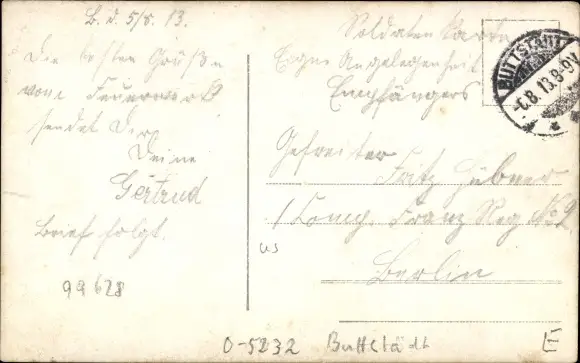 B. d. 5/8. 13.
Die besten Grüße
vom Feuerwerk
sendet Dir
Deine
Gertrud
Brief folgt.
99628
Soldaten Karte
Eigne Angelegenheit
Empfängers
BUTTSTÄDT
6.8.13.8-9V.
Gefreiter
Fritz Hübner
1 Comp. Franz Reg. No 2
Berlin
us
O-5232 Buttstädt
E